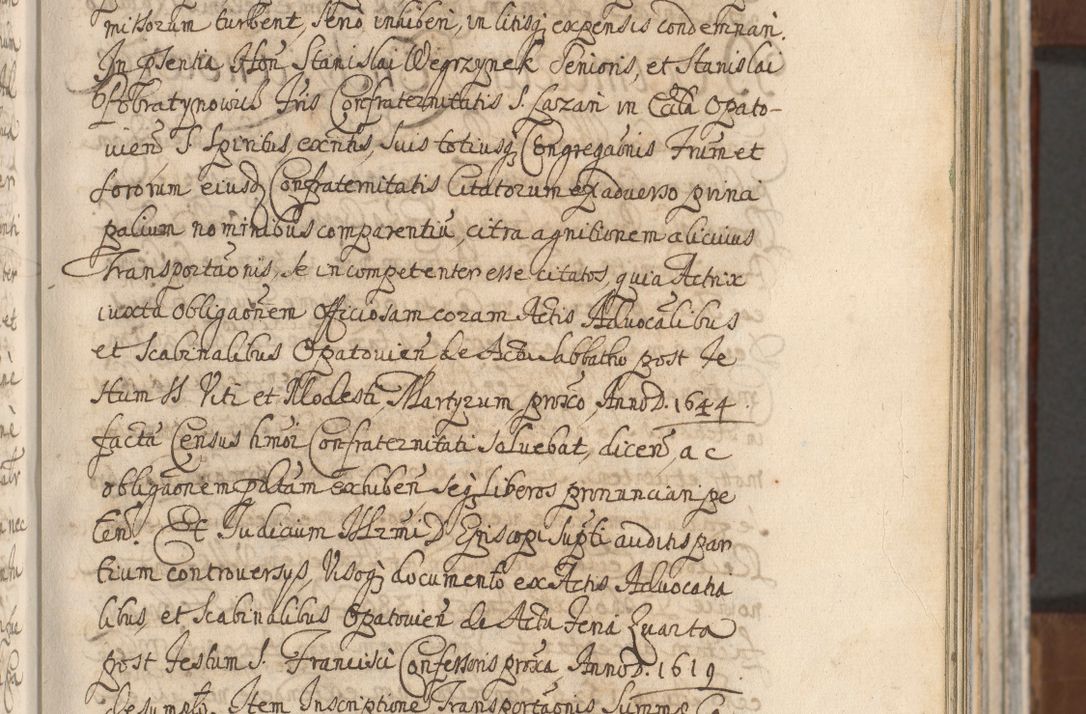 missorum turbent, serio inhiberi, in litisq expensis condemnari.
In pñtia Hoñ Stanislai Węgrzynek Senioris, et Stanislai
Obratynowicz Iuris Confraternitatis S. Lazari in Eccła Opato-
vieñ S. Spiritus, exñtis, suis totiusq Congregaõnis Frũm et
sororum eiusd Confraternitatis Citatorum ex adverso princi
palium nominibus comparentiũ, citra agnitionem alicuius
Transportaõnis, se incompetenter esse citatos, quia Actrix
iuxta obligaõnem officiosam coram Actis Advocalibus
et Scabinalibus Opatovieñ de Actu Sabbatho post Fe
stum SS Viti et Modesti, Martyrum proxo, Anno D. 1644.
facta Census hmoi Confraternitati solvebat, dicen, ac
obligaõnem pttam exhiben seq liberos pronunciari pe
ten. Et Iudicium Illrmi D Episcopi supti auditis par
tium controversijs, visoq documento ex Actis Advocatia
libus, et Scabinalibus Opatovieñ de Actu feria Quarta
post Festum S. Francisci Confessoris proxa, Anno D. 1619.
desumpto. Item Inscriptione Transportaõnis Summe